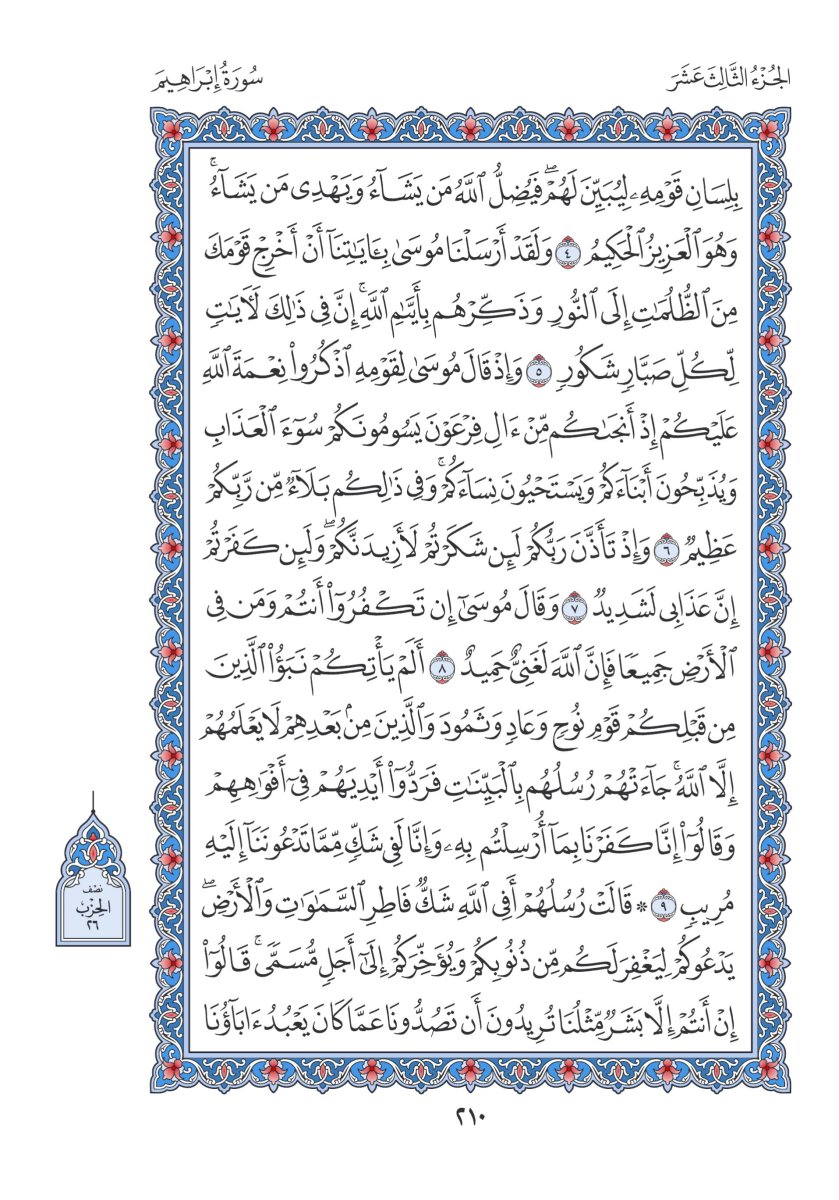 الجُزْءُ الثَّالِثَ عَشَرَ
سُورَةُ إِبْرَاهِيمَ
بِلِسَانِ قَوْمِهِۦ لِيُبَيِّنَ لَهُمْۖ فَيُضِلُّ ٱللَّهُ مَن يَشَآءُ وَيَهْدِى مَن يَشَآءُۚ
وَهُوَ ٱلْعَزِيزُ ٱلْحَكِيمُ ٤ وَلَقَدْ أَرْسَلْنَا مُوسَىٰ بِـَٔايَٰتِنَآ أَنْ أَخْرِجْ قَوْمَكَ
مِنَ ٱلظُّلُمَٰتِ إِلَى ٱلنُّورِ وَذَكِّرْهُم بِأَيَّىٰمِ ٱللَّهِۚ إِنَّ فِى ذَٰلِكَ لَأٓيَٰتٍ
لِّكُلِّ صَبَّارٍ شَكُورٍ ٥ وَإِذْ قَالَ مُوسَىٰ لِقَوْمِهِ ٱذْكُرُوا۟ نِعْمَةَ ٱللَّهِ
عَلَيْكُمْ إِذْ أَنجَىٰكُم مِّنْ ءَالِ فِرْعَوْنَ يَسُومُونَكُمْ سُوٓءَ ٱلْعَذَابِ
وَيُذَبِّحُونَ أَبْنَآءَكُمْ وَيَسْتَحْيُونَ نِسَآءَكُمْۚ وَفِى ذَٰلِكُم بَلَآءٌ مِّن رَّبِّكُمْ
عَظِيمٌ ٦ وَإِذْ تَأَذَّنَ رَبُّكُمْ لَئِن شَكَرْتُمْ لَأَزِيدَنَّكُمْۖ وَلَئِن كَفَرْتُمْ
إِنَّ عَذَابِى لَشَدِيدٌ ٧ وَقَالَ مُوسَىٰٓ إِن تَكْفُرُوٓا۟ أَنتُمْ وَمَن فِى
ٱلْأَرْضِ جَمِيعًا فَإِنَّ ٱللَّهَ لَغَنِىٌّ حَمِيدٌ ٨ أَلَمْ يَأْتِكُمْ نَبَؤُا۟ ٱلَّذِينَ
مِن قَبْلِكُمْ قَوْمِ نُوحٍ وَعَادٍ وَثَمُودَ وَٱلَّذِينَ مِنۢ بَعْدِهِمْ لَا يَعْلَمُهُمْ
إِلَّا ٱللَّهُۚ جَآءَتْهُمْ رُسُلُهُم بِٱلْبَيِّنَٰتِ فَرَدُّوٓا۟ أَيْدِيَهُمْ فِىٓ أَفْوَٰهِهِمْ
وَقَالُوٓا۟ إِنَّا كَفَرْنَا بِمَآ أُرْسِلْتُم بِهِۦ وَإِنَّا لَفِى شَكٍّ مِّمَّا تَدْعُونَنَآ إِلَيْهِ
مُرِيبٍ ٩ * قَالَتْ رُسُلُهُمْ أَفِى ٱللَّهِ شَكٌّ فَاطِرِ ٱلسَّمَٰوَٰتِ وَٱلْأَرْضِۖ
يَدْعُوكُمْ لِيَغْفِرَ لَكُم مِّن ذُنُوبِكُمْ وَيُؤَخِّرَكُمْ إِلَىٰٓ أَجَلٍ مُّسَمًّىۚ قَالُوٓا۟
إِنْ أَنتُمْ إِلَّا بَشَرٌ مِّثْلُنَا تُرِيدُونَ أَن تَصُدُّونَا عَمَّا كَانَ يَعْبُدُ ءَابَآؤُنَا
نصف
الحزب
٢٦
٢١٠